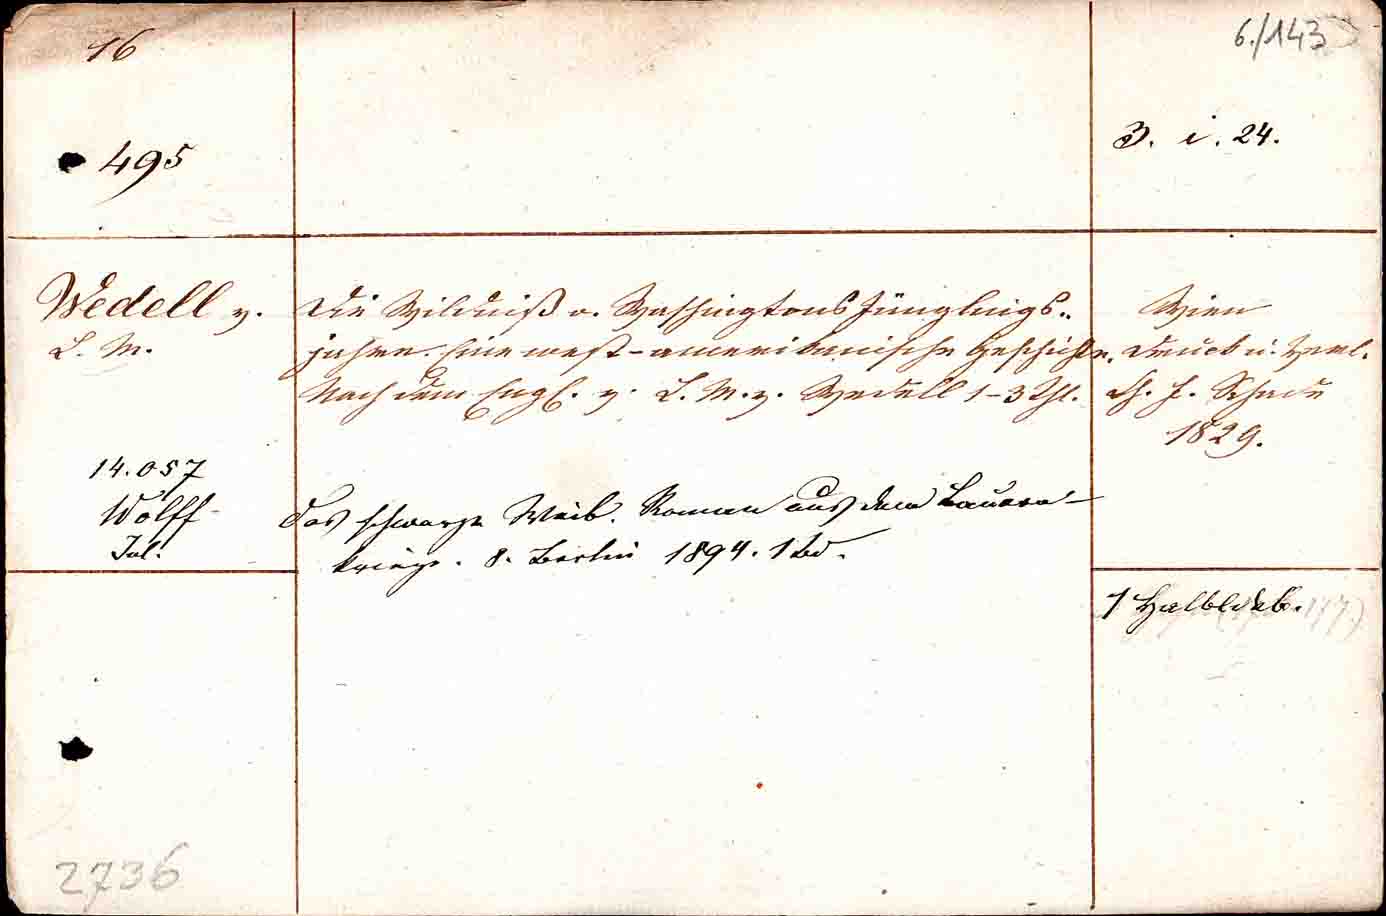 16
6./143
495
3. i. 24.
Wedell v.
L. M.
Die Wildniß o. Washingtons Jünglings-
jahre. Eine west-amerikanische Geschichte.
Nach dem Engl. v. L. M. v. Wedell 1-3 Thl.
Wien
Druck u. Verl.
Ch. F. Schade
1829.
14.057
Wolff
Jul.
Das schwarze Weib. Roman aus dem Bauern-
kriege. 8. Berlin 1894. 1 Bd.
1 Halbldrb.
2736